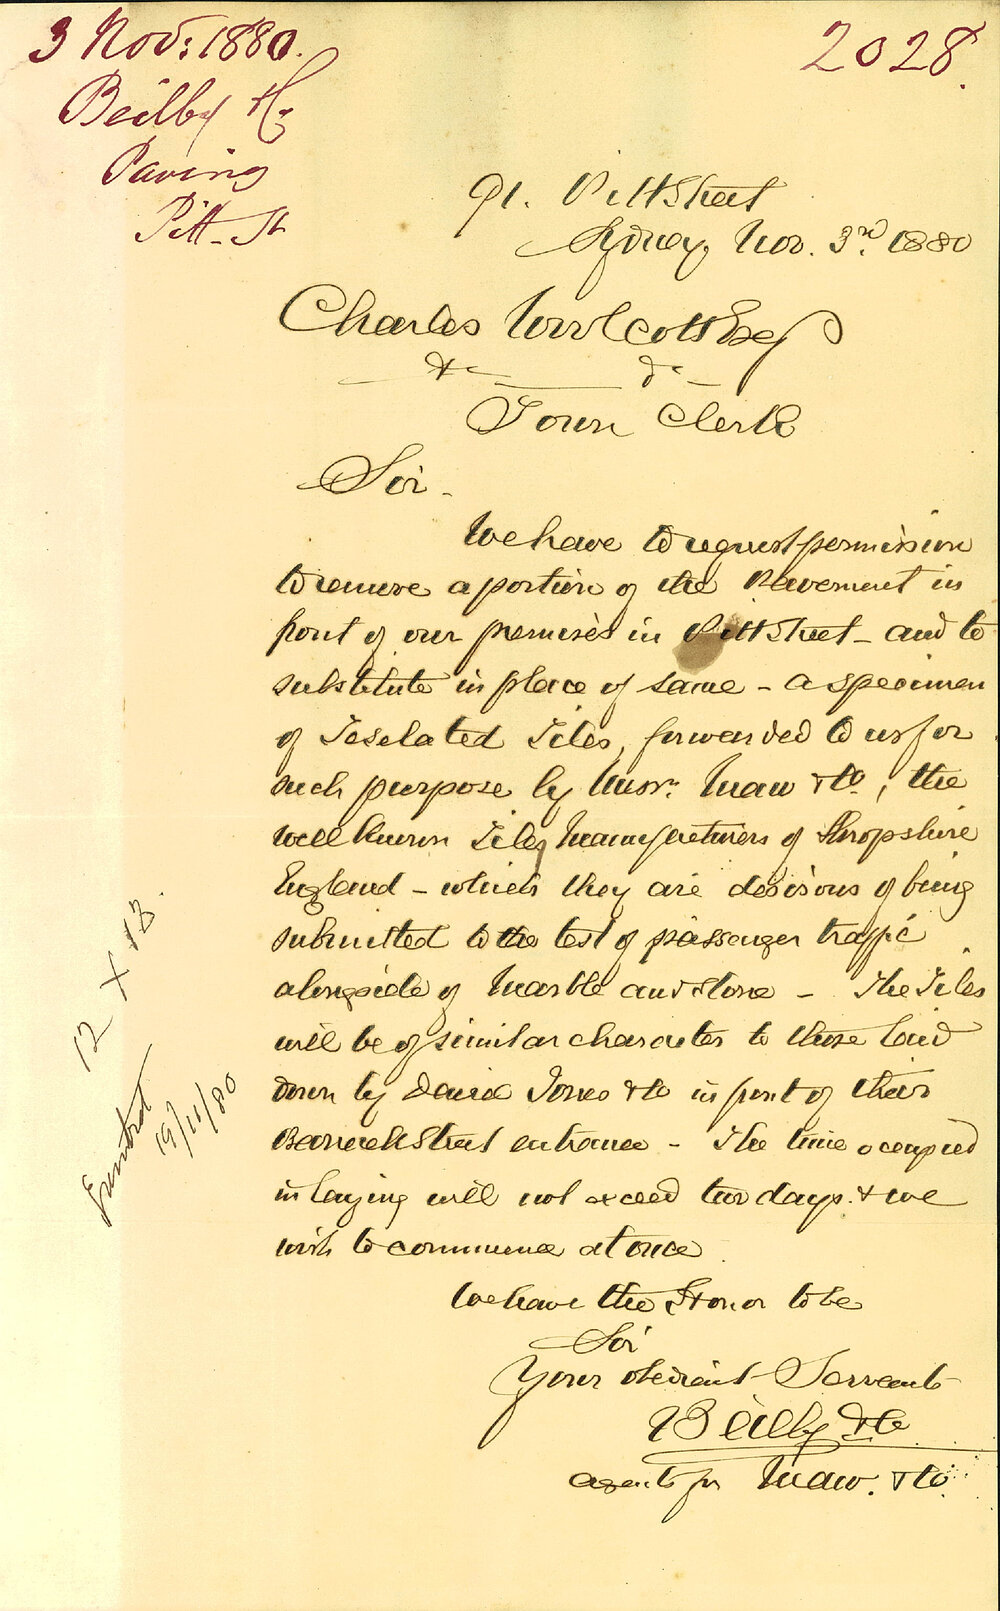 3 Nov: 1880.
2028.
Beilby H.
Paving
Pitt. St
91. Pitt Street
Sydney, Nov. 3rd. 1880
Charles Woolcott Esq
&c &c
Town Clerk
Sir.
We have to request permission
to remove a portion of the Pavement in
front of our premises in Pitt Street - and to
substitute in place of same - a specimen
of Teselated Tiles, forwarded to us for
such purpose by Messrs. Maw & Co, the
well known Tile Manufacturers of Shropshire
England - which they are desirous of being
submitted to the test of passenger traffic
alongside of Marble and Stone - The Tiles
will be of similar character to those laid
down by David Jones & Co in front of their
Barrack Street entrance - The time occupied
in laying will not exceed two days & we
wish to commence at once
We have the Honor to be
Sir
Your obedient Servants
Beilby & Co
agents for Maw. & Co.
12 x 12.
19/11/80